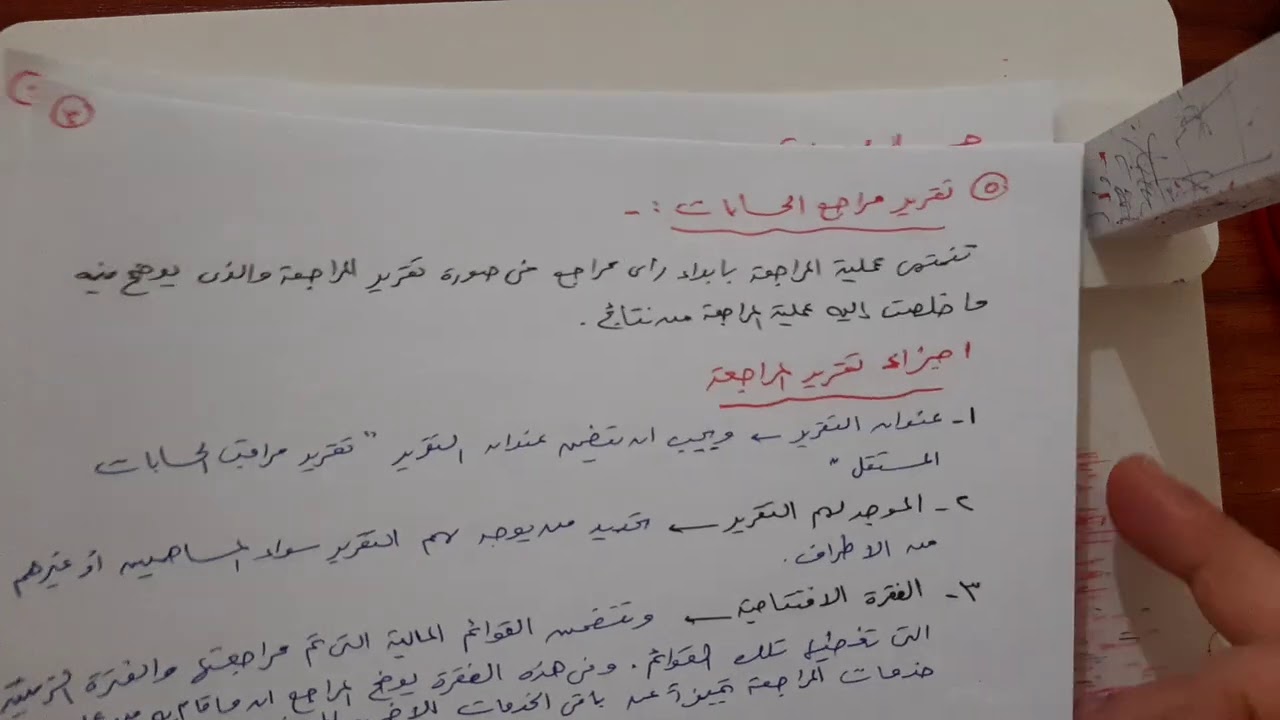 ٣
٥ تقرير مراجع الحسابات :-
تنتهى عملية المراجعة بابداء راى مراجع فى صورة تقرير المراجعة والذى يوضح فيه
ما خلصت إليه عملية المراجعة من نتائج .
اجزاء تقرير المراجعة
١- عنوان التقرير ← ويجب ان يتضمن عنوان التقرير " تقرير مراقب الحسابات
المستقل "
٢- الموجه لهم التقرير ← تحديد من يوجه لهم التقرير سواء المساهمين او غيرهم
من الاطراف .
٣- الفقرة الافتتاحية ← وتتضمن القوائم المالية التى تم مراجعتها والفترة الزمنية
التى تغطيها تلك القوائم . وفى هذه الفقرة يوضح المراجع ان ما قام به من
خدمات المراجعة تميزة عن باقى الخدمات